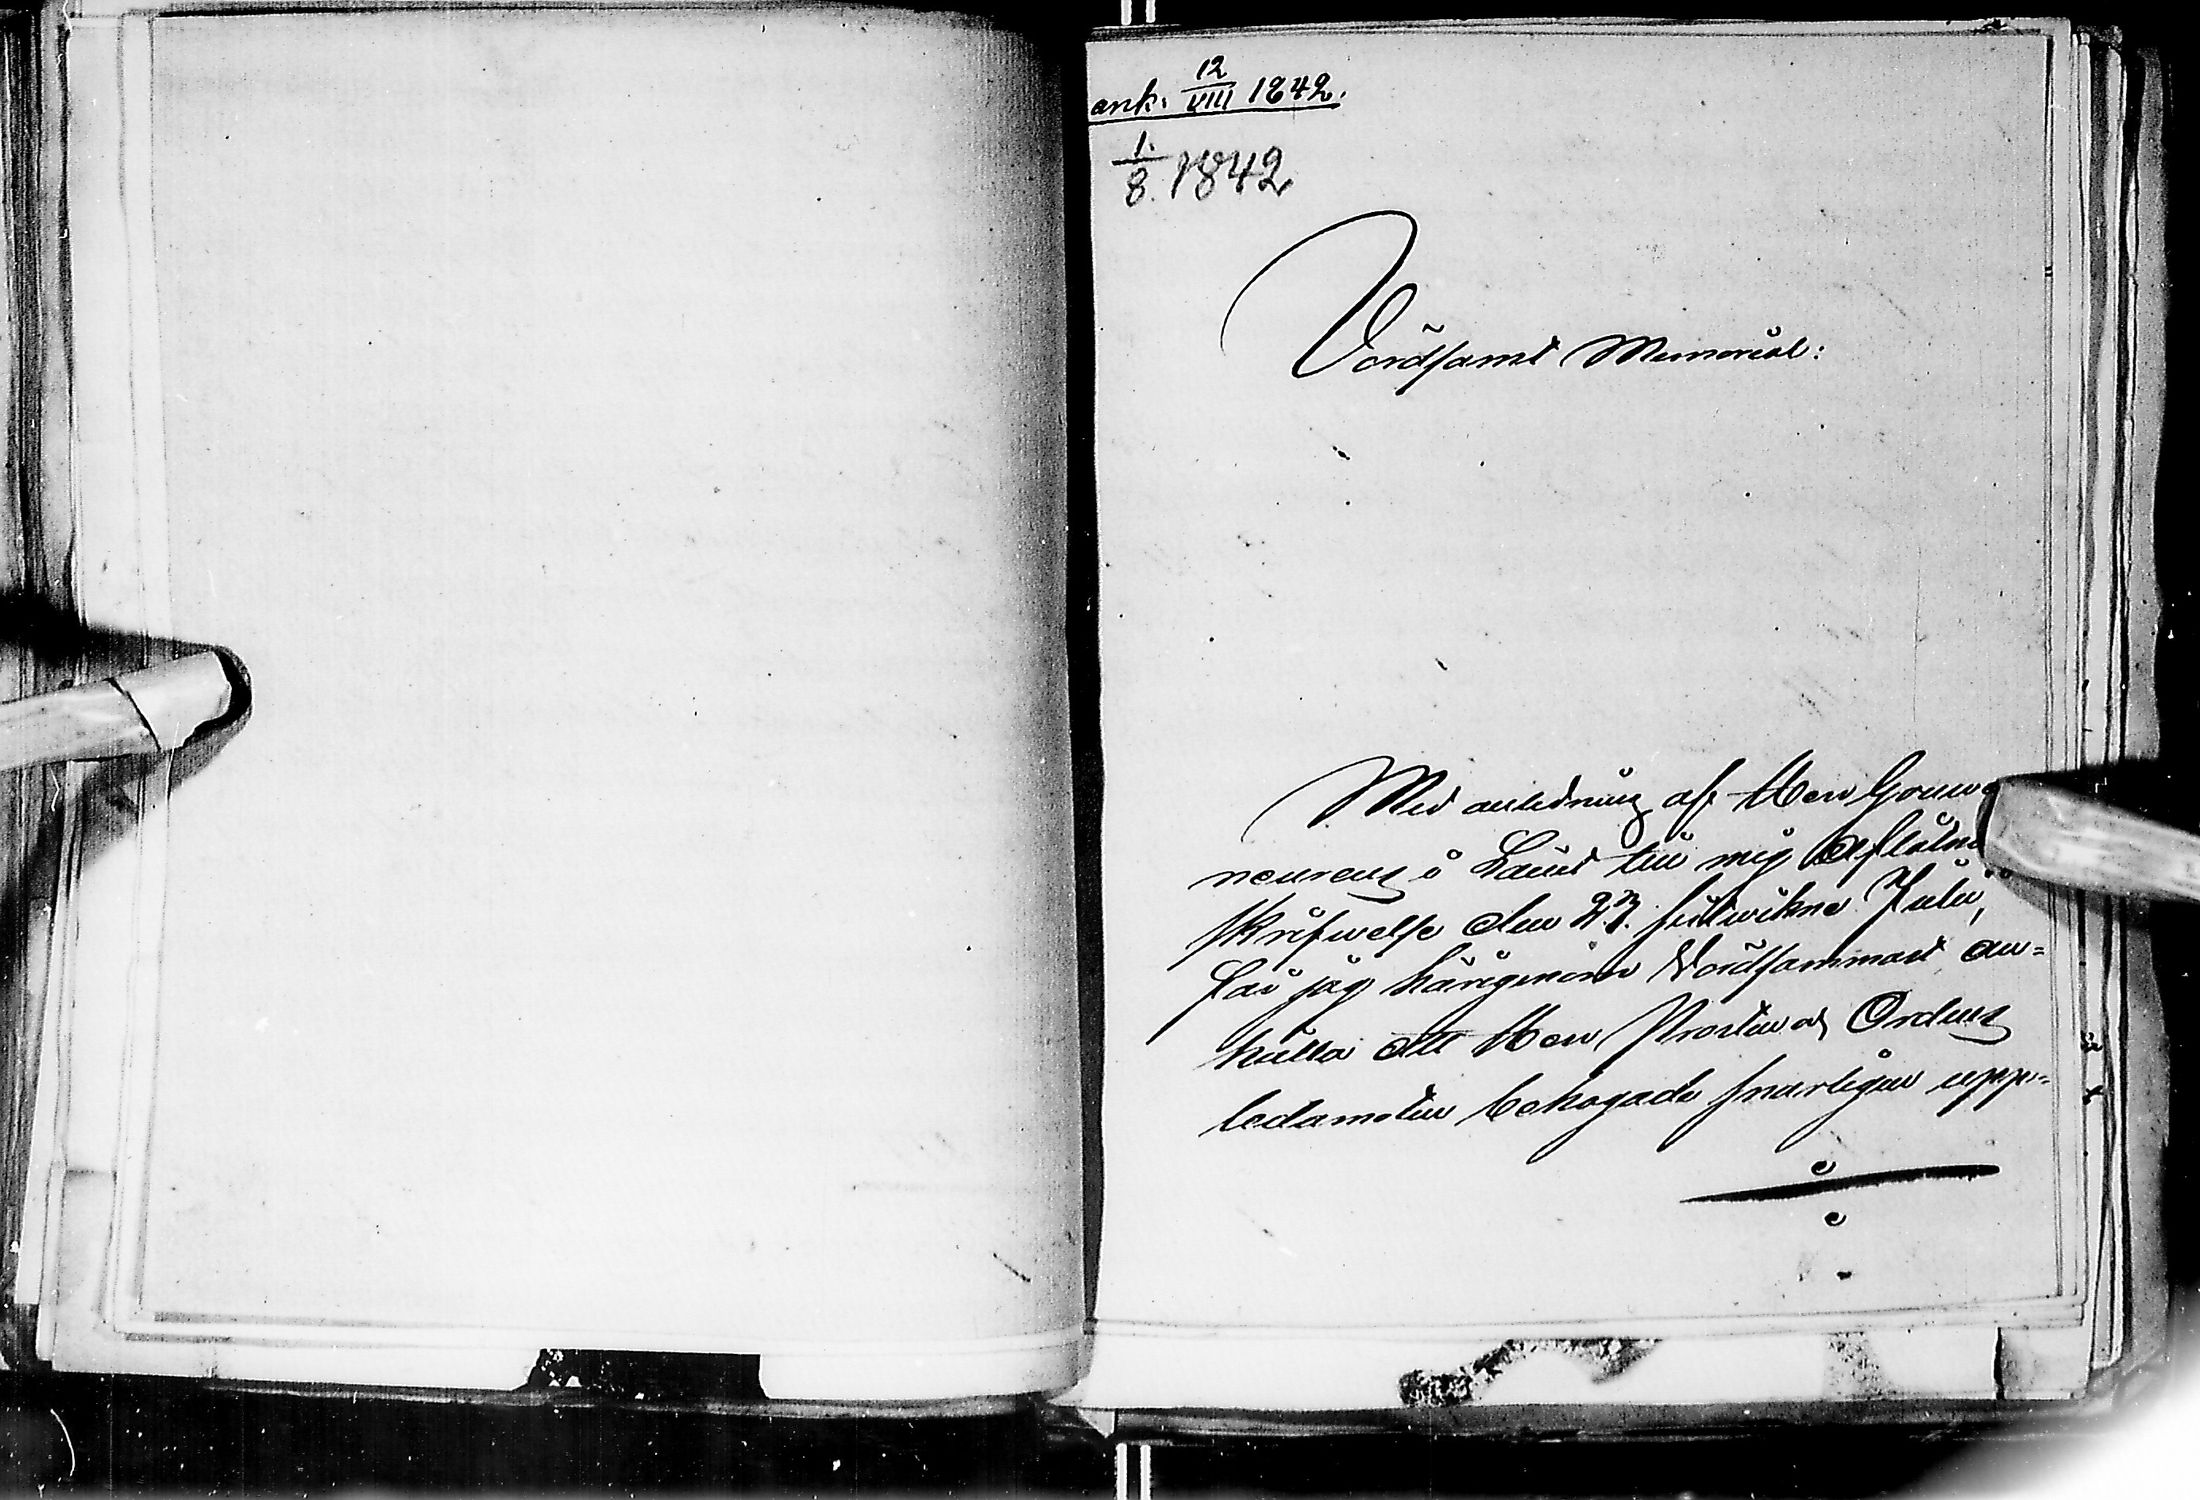 ank. 12/VIII 1842.
1./8. 1842
Vördsamt Memorial:
Med anledning af Herr Gouver
neurens i Länet till mig aflåtne
skrifwelse den 23. sistwikne Julii,
får jag härigenom Vördsammast an=
hålla att Herr Prosten och Ordens
ledamoten behagade snarligen upp=